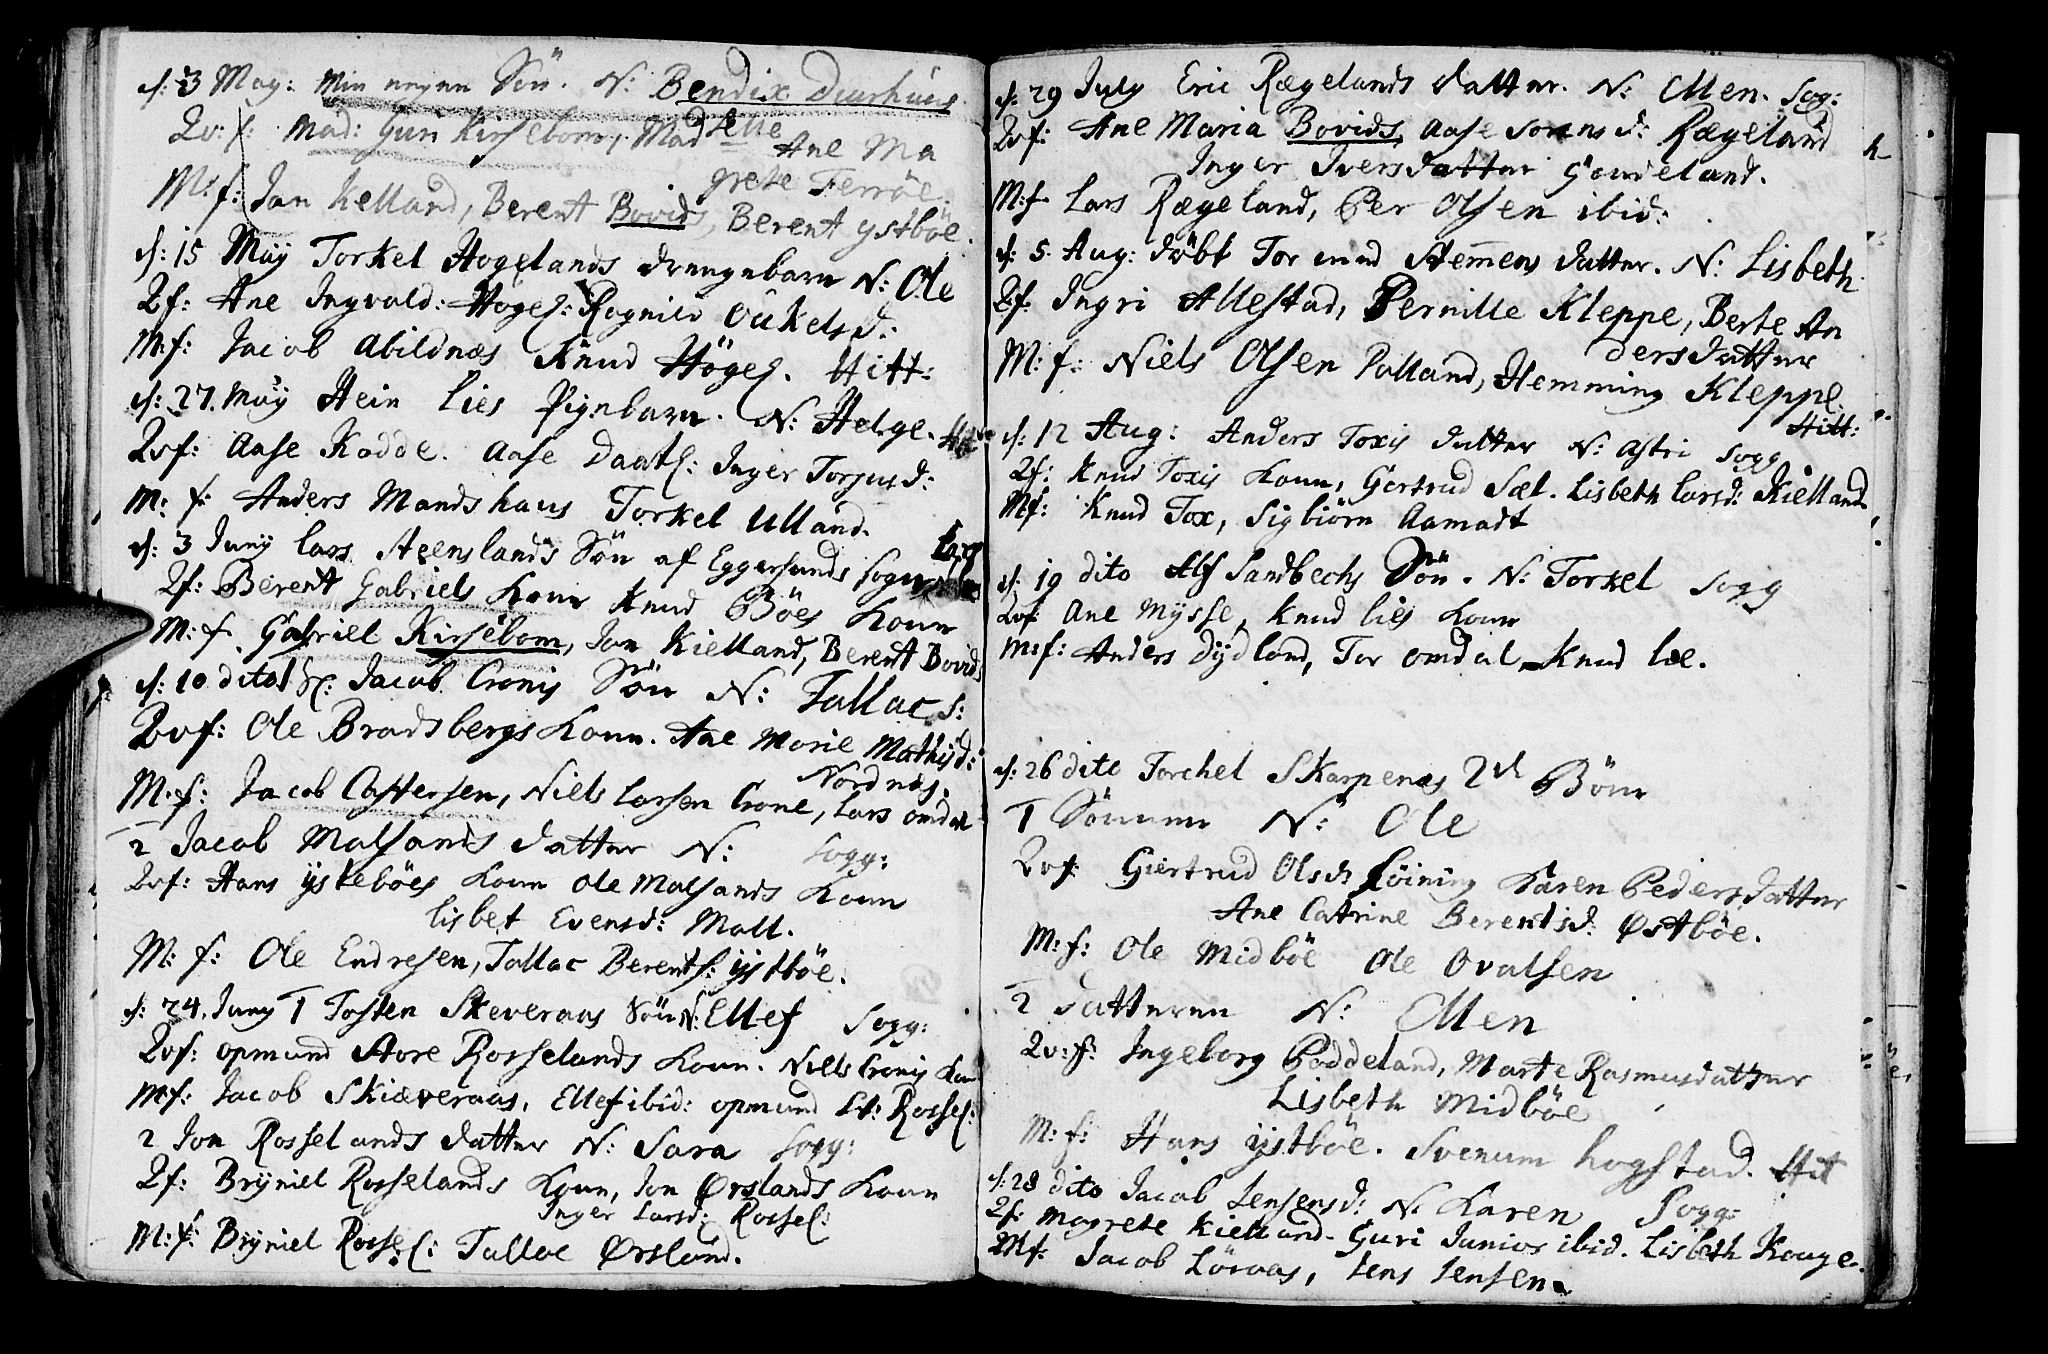 d: 3 May: Min egen Søn. N: Bendix Duurhuus
Qv: f: Mad: Guri Kirsebom, Madselle Ane Ma
grete Ferröe.
M: f: Jan Kelland, Berent Bovids, Berent ystböe.
d: 15 Maÿ Torkel Hogelands drengebarn N: Ole
Qf: Ane Ingvald: Hogel: Rognild Oukelsd:
M:f: Jacob Abildnæs Knud Högel. Hitt:
d: 27. Maÿ Stein Lies Pigebarn. N: Helge.
Qvf: Aase Kodde. Aase Daatl: Inger Torjusd:
M: f: Anders Mandshaus Torkel Ulland.
d: 3 Junÿ Lars Steenslands Søn af Eggersunds Sogn N: Lars
Qf: Berent Gabriels Kone Knud Böes Kone
M: f. Gabriel Kirsebom, Jan Kielland, Berent Bovids
d: 10 dito 1 Sl: Jacob Cronis Søn N: Tallac S:
Qvf: Ole Bradsbergs Kone. Ane Marie Mathisd:
Nordnæs.
M:f: Jacob Castersen, Niels Larsen Crone, Lars omdal
2 Jacob Malsands datter N: Sogg:
Qvf: Hans ystebøes Kone Ole Malsands Kone
Lisbet Evensd: Mall.
M: f: Ole Endresen, Tallac Berents: ijstböe.
d: 24. Juny 1 Tosten Skeveraas Søn N: Ellef Sogg:
Qvf: opmund Store Rosselands Kone. Niels Cronis Kone
Mf: Jacob Skiæveraas, Ellef ibid: opmund St: Rossel:
2 Jon Rosselands datter N: Sara Sogg:
Qf: Bryniel Rosselands Kone, Jon Ørslands Kone
Inger Larsd: Rossel:
M:f: Bryniel Rossel: Talloe Ørsland.
d: 29 July Eric Rægelands datter. N: Ellen. Sog:
Qvf: Ane Maria Bovids, Aase Sorensd: Rægeland
Inger Iversdatter Goudeland.
M:f. Lars Rægeland, Per Olsen ibid:
d: 5. Aug: døbt Tor Stemmens datter. N: Lisbeth
Qf: Ingri Allestad, Pernille Kleppe, Berte An
dersdatter
M: f: Niels Olsen Palland, Hemming Kleppe
Hitt:
d: 12 Aug: Anders Toxis datter N: Astri Sogg
Qf: Knud Toxis Kone, Gertrud Sæl. Lisbeth Larsd: Kielland
Mf: Knud Tox, Sigbiörn Aamodt
d: 19 dito Alf Sandbechs Søn. N: Torkel Sogg
Qvf: Ane Mysse, Knud Lies Kone
M:f: Anders Dydland, Tor omdal, Knud Lie.
d: 26 dito Torchel Skarpenæs 2de Børn
1 Sønnen N: Ole
Qvf. Giertrud Olsd: Løining Karen Pedersdatter
Ane Catrine Berentsd: Østböe.
M: f: Ole Midböe Ole Ovalsen
2 Datteren N: Ellen
Qv: f: Ingeborg Poddeland, Marte Rasmusdatter
Lisbeth Midböe
M: f: Hans ijstböe. Svenum hogstad. Hit
d: 28 dito Jacob Jensensd: N: Karen Sogg:
Qf. Magrete Kielland. Guri Junior ibid. Lisbeth Kouge.
Mf: Jacob Löraas, Jens Jensen.